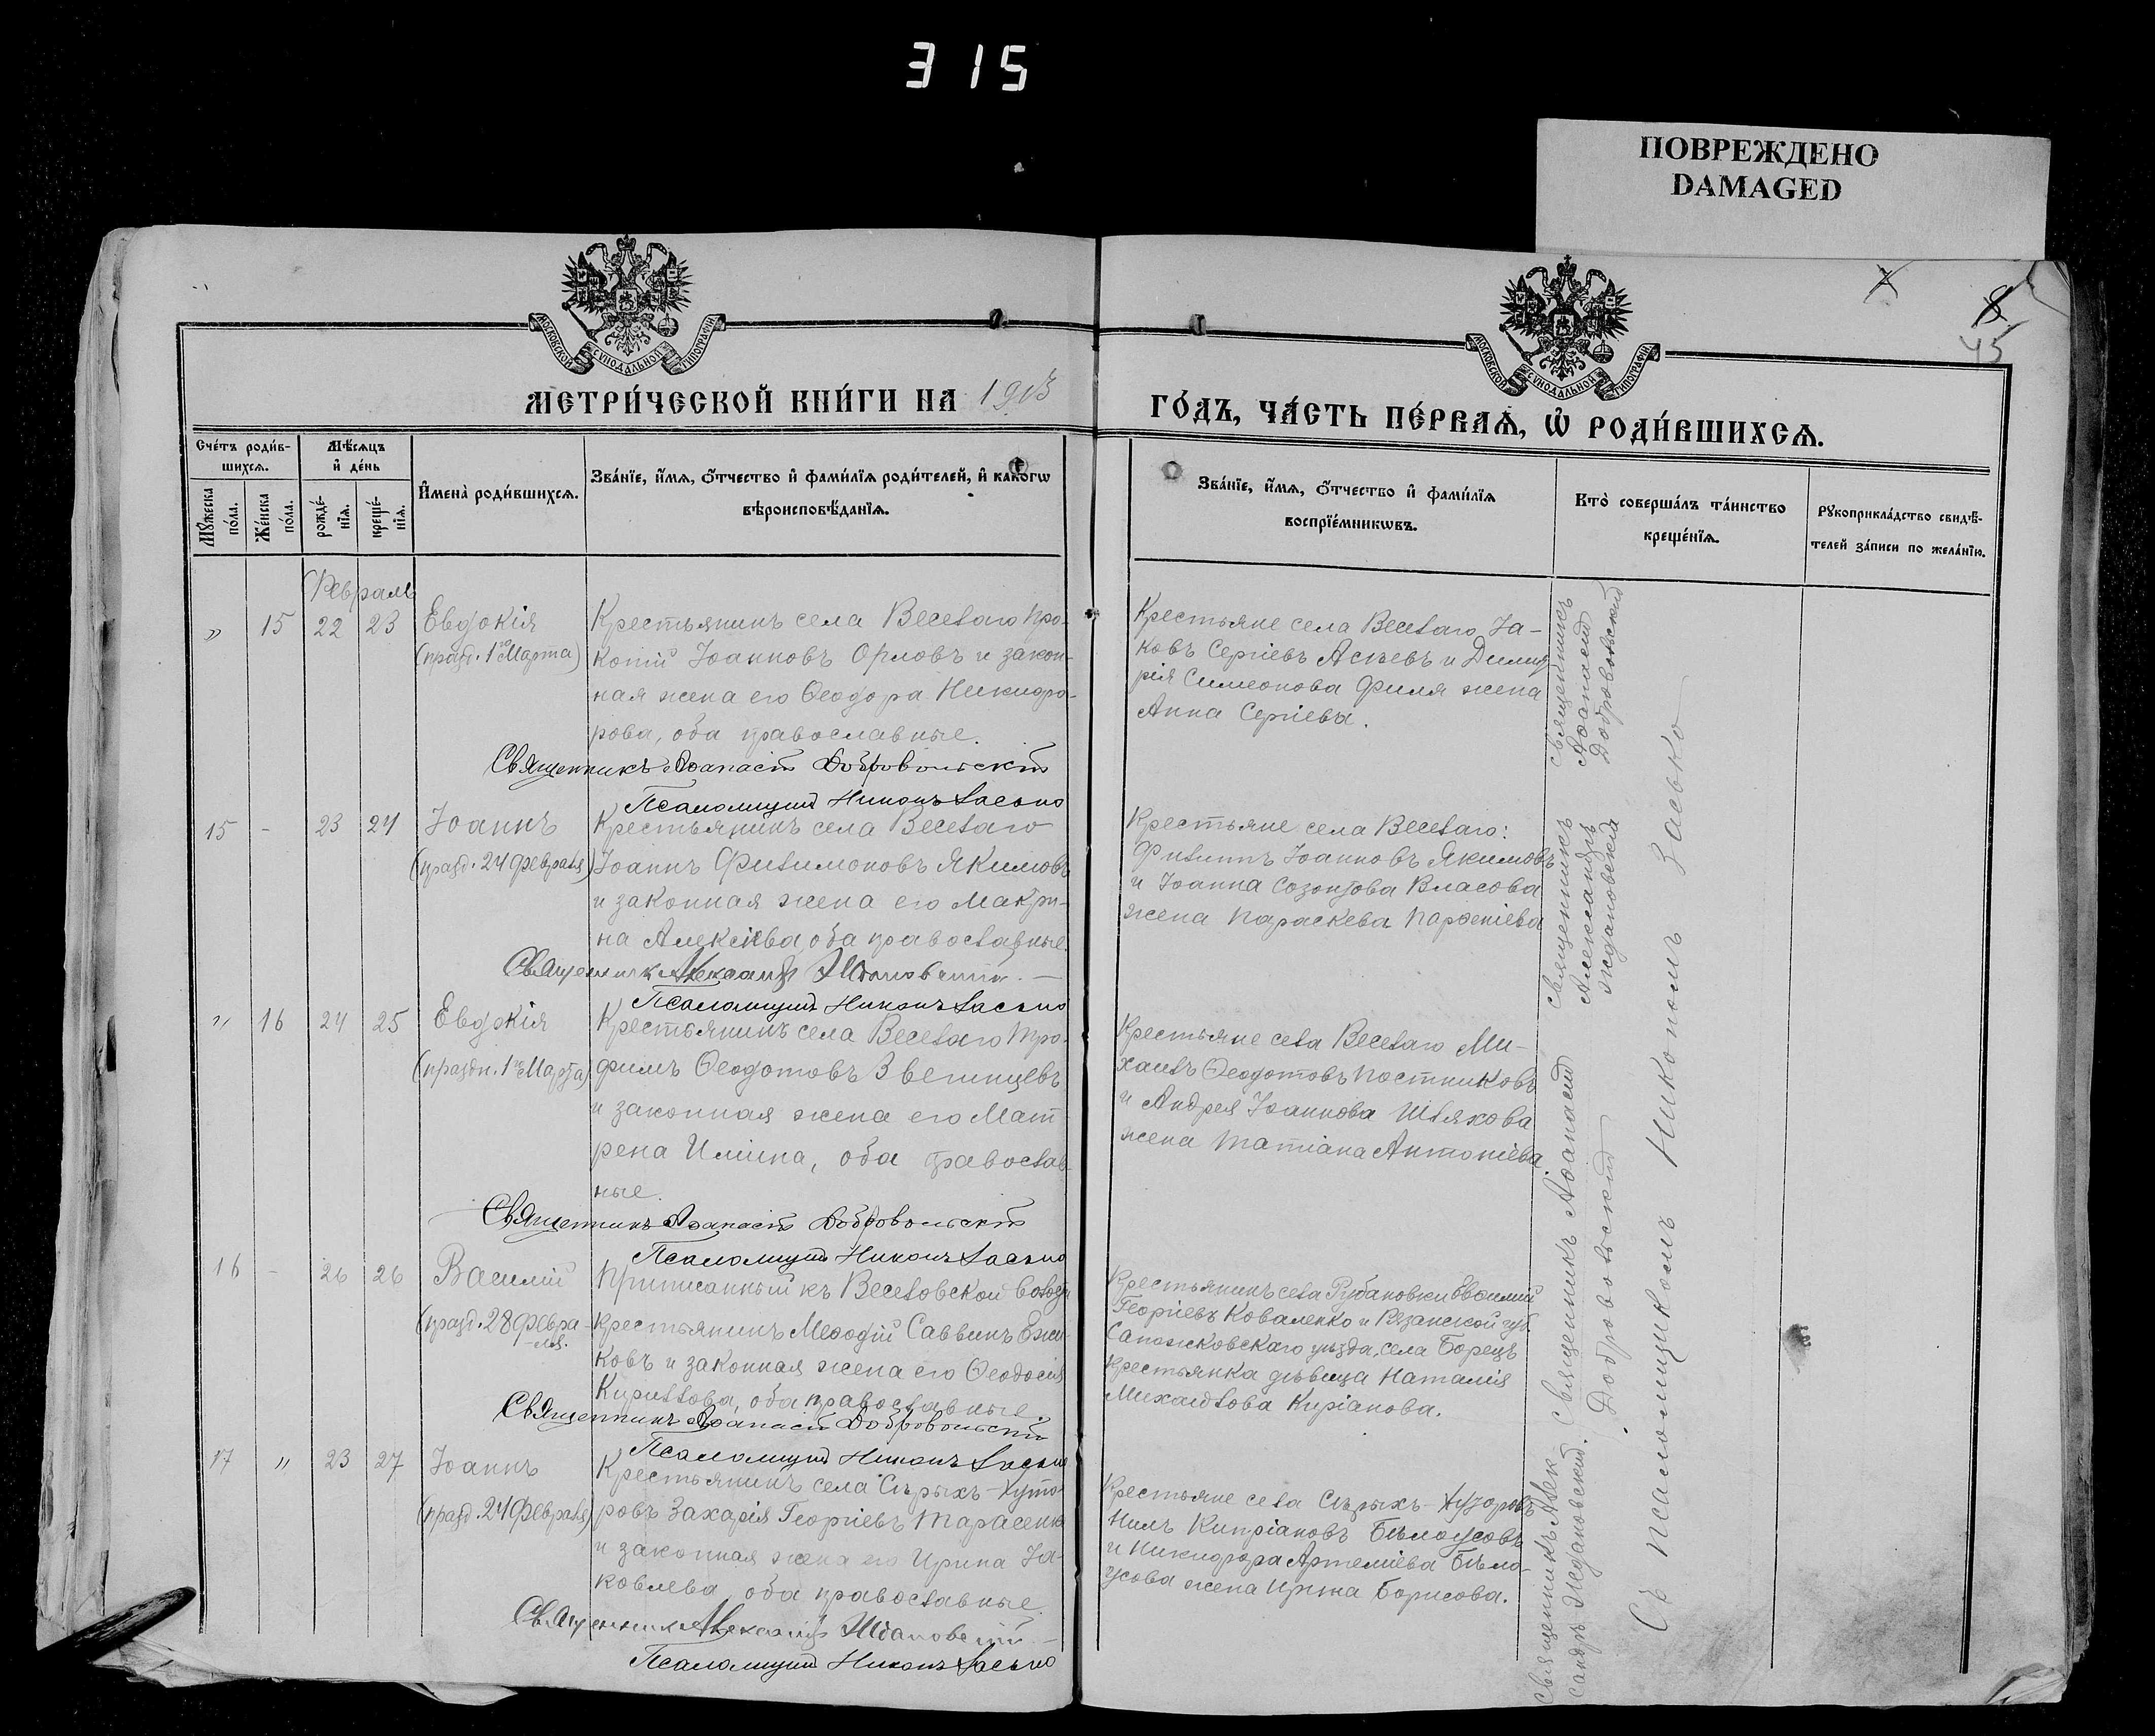 315
ПОВРЕЖДЕНО
DAMAGED
8
45
МОСКОВСКОЙ СУНОДАЛЬНОЙ ТИПОГРАФІИ
МОСКОВСКОЙ СУНОДАЛЬНОЙ ТИПОГРАФІИ
МЕТРИ́ЧЕСКОЙ КНИ́ГИ НА 1913
ГО́ДЪ, ЧА́СТЬ ПЕ́РВАѦ, Ѡ РОДИ́ВШИХСѦ.
Сче́тъ роди́в-
шихсѧ.
Мꙋжеска по́ла.
Же́нска по́ла.
Мѣ́сѧцъ
и҆ де́нь
рожде́-
нїѧ.
креще́-
нїѧ.
И҆мена̀ роди́вшихсѧ.
Зва́нїе, и҆́мѧ, ѻ҆́тчество и҆ фами́лїѧ роди́телей, и҆ како́гѡ
вѣроисповѣ́данїѧ.
Зва́нїе, и҆́мѧ, ѻ҆́тчество и҆ фами́лїѧ
воспрїе́мникѡвъ.
Кто̀ соверша́лъ та́инство
креще́нїѧ.
Рꙋкоприкла́дство свидѣ́-
телей за́писи по жела́нїю.
Февраль
„ 15 22 23 Евдокія
(празд. 1го Марта)
Крестьянинъ села Веселаго Про-
копій Іоанновъ Орловъ и закон-
ная жена его Ѳеодора Никифо-
рова, оба православные.
Священникъ Аѳанасій Добровольскій
Псаломщикъ Никонъ Засько
Крестьяне села Веселаго Іа-
ковъ Сергіевъ Асѣевъ и Димит
рія Симеонова Филя жена
Анна Сергіева.
Священникъ
Аѳанасій
Добровольскій
15 - 23 24 Іоаннъ
(празд. 24 февраля)
Крестьянинъ села Веселаго
Іоаннъ Филимоновъ Якимовъ
и законная жена его Макри-
на Алексіева, оба православные.
Священникъ Александръ Ждановскій
Псаломщикъ Никонъ Засько
Крестьяне села Веселаго:
Филиппъ Іоанновъ Якимовъ
и Іоанна Созонтова Власова
жена Параскева Парѳеніева
Священникъ
Александръ
Ждановскій
„ 16 24 25 Евдокія
(праздн. 1го Марта)
Крестьянинъ села Веселаго Тро-
фимъ Ѳеодотовъ Звегинцевъ
и законная жена его Мат
рена Иліина, оба православ-
ные.
Священникъ Аѳанасій Добровольскій
Псаломщикъ Никонъ Засько
Крестьяне села Веселаго Ми-
хаилъ Ѳеодотовъ Постниковъ
и Андрея Іоаннова Шляхова
жена Татіана Антоніева.
Священникъ Аѳанасій
Добровольскій
16 - 26 26 Василій
(празд. 28 февра-
ля.
Приписанный къ Веселовской волости
крестьянинъ Меѳодій Саввинъ Ежи-
ковъ и законная жена его Ѳеодосія
Кириллова, оба православные.
Священникъ Аѳанасій Добровольскій
Псаломщикъ Никонъ Засько
Крестьянинъ села Рубановки Евѳимій
Георгіевъ Коваленко и Рязанской губ.
Сапожковскаго уѣзда, села Борецъ
крестьянка дѣвица Наталія
Михайлова Киріанова.
17 „ 23 27 Іоаннъ
(празд. 24 февраля)
Крестьянинъ села Сѣрыхъ-Хуто-
ровъ Захарія Георгіевъ Тарасенко
и законная жена его Ирина Іа-
ковлева, оба православные.
Священникъ Александръ Ждановскій
Псаломщикъ Никонъ Засько
Крестьяне села Сѣрыхъ-Хуторовъ
Нилъ Кипріановъ Бѣлоусовъ
и Никифора Артеміева Бѣло-
усова жена Ирина Борисова.
Священникъ Алек
сандръ Ждановскій.
Съ псаломщикомъ Никономъ Засько